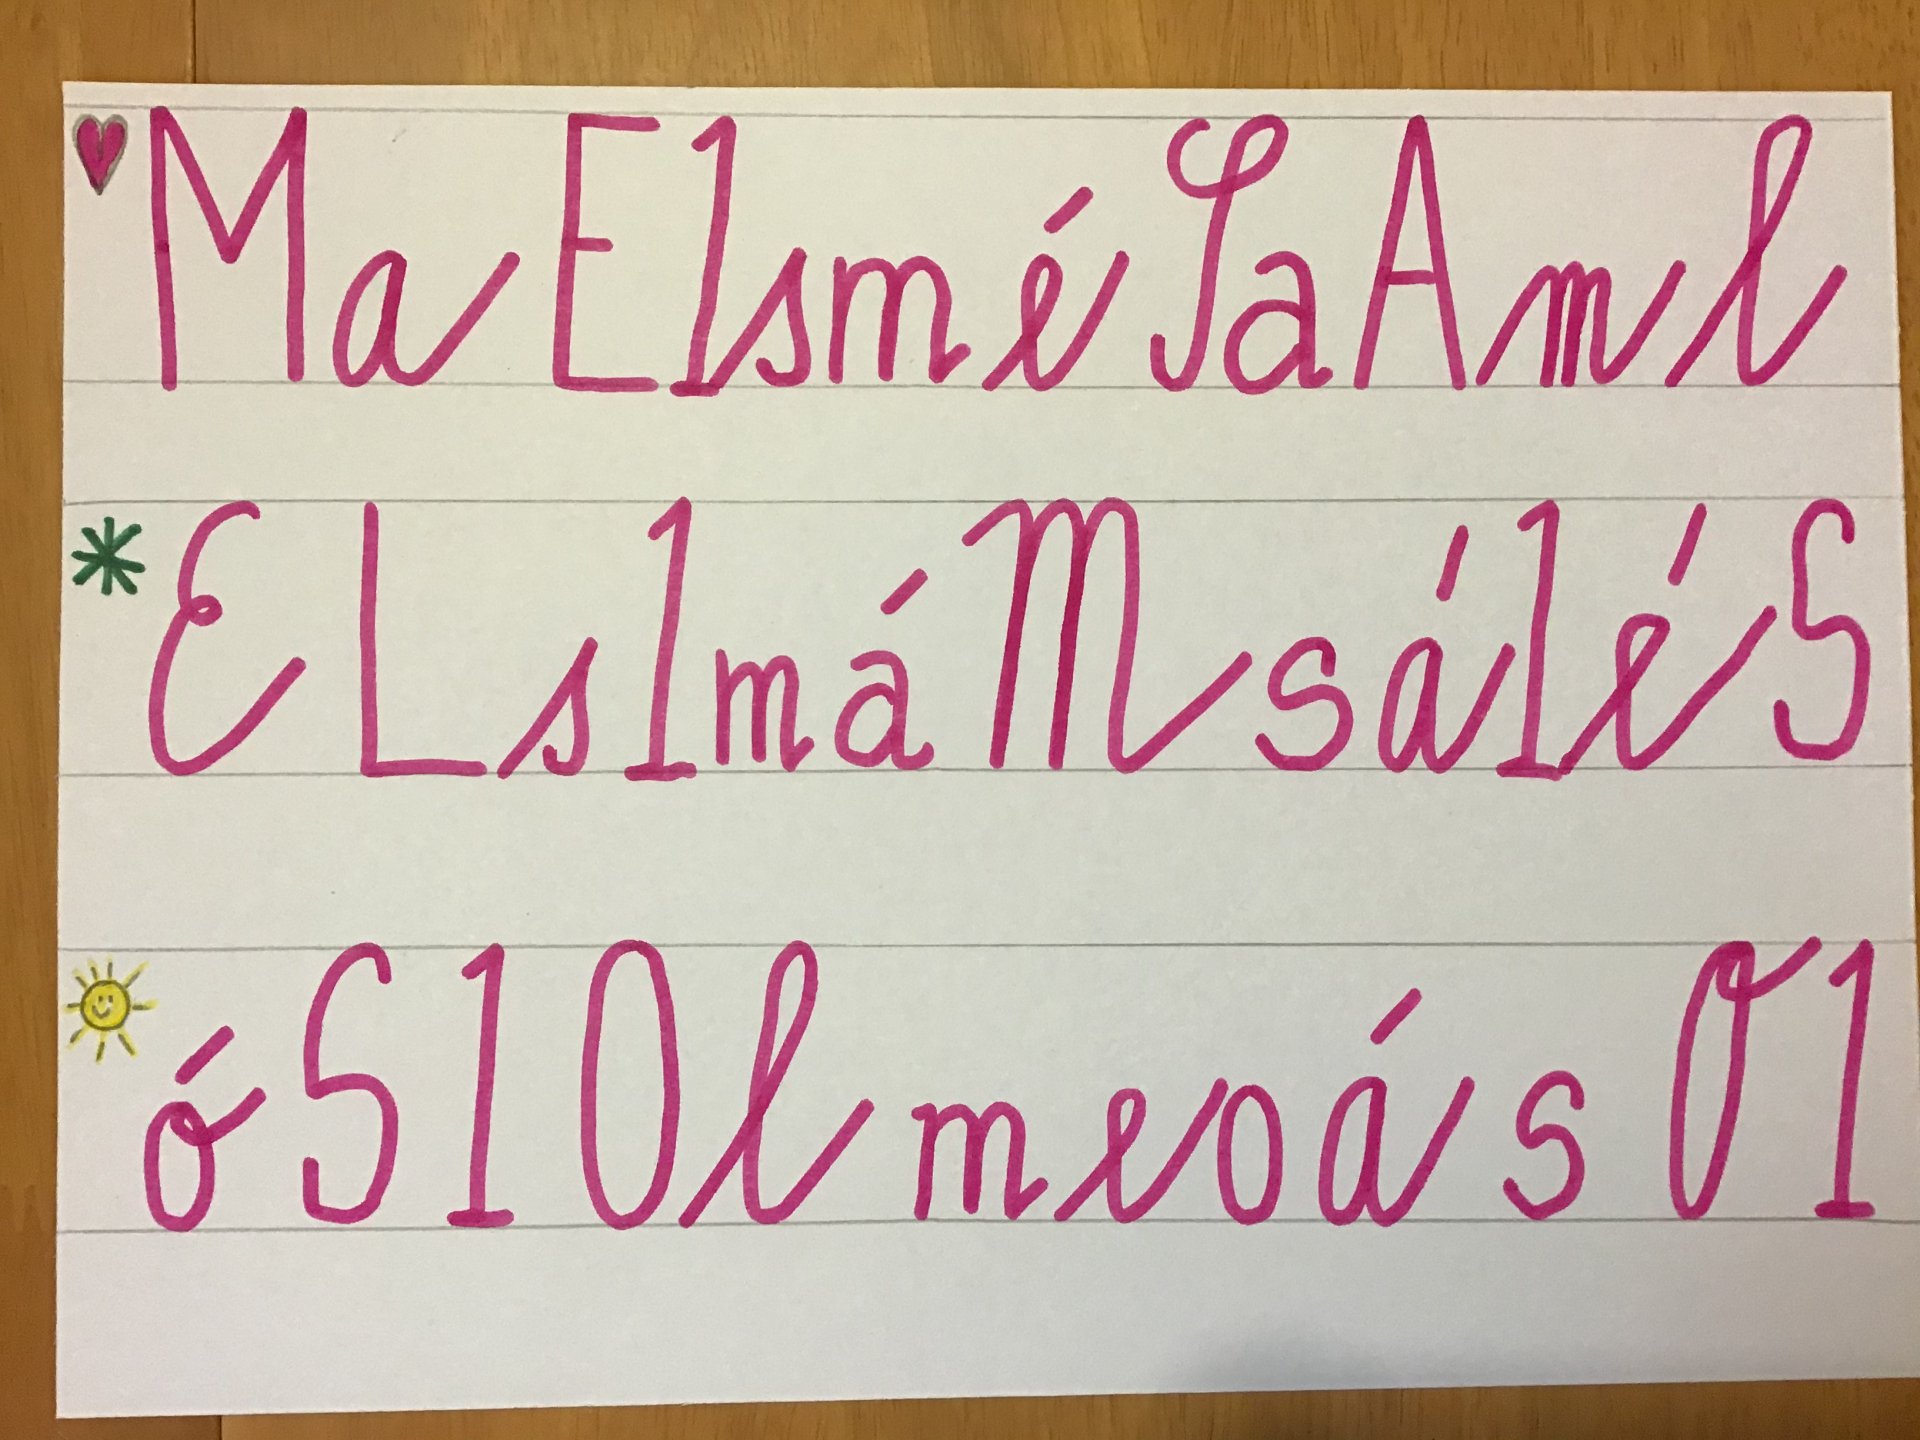 M a E l s m é S a A m l
E L s l m á M s á l é S
ó S l O l m e o á s O l